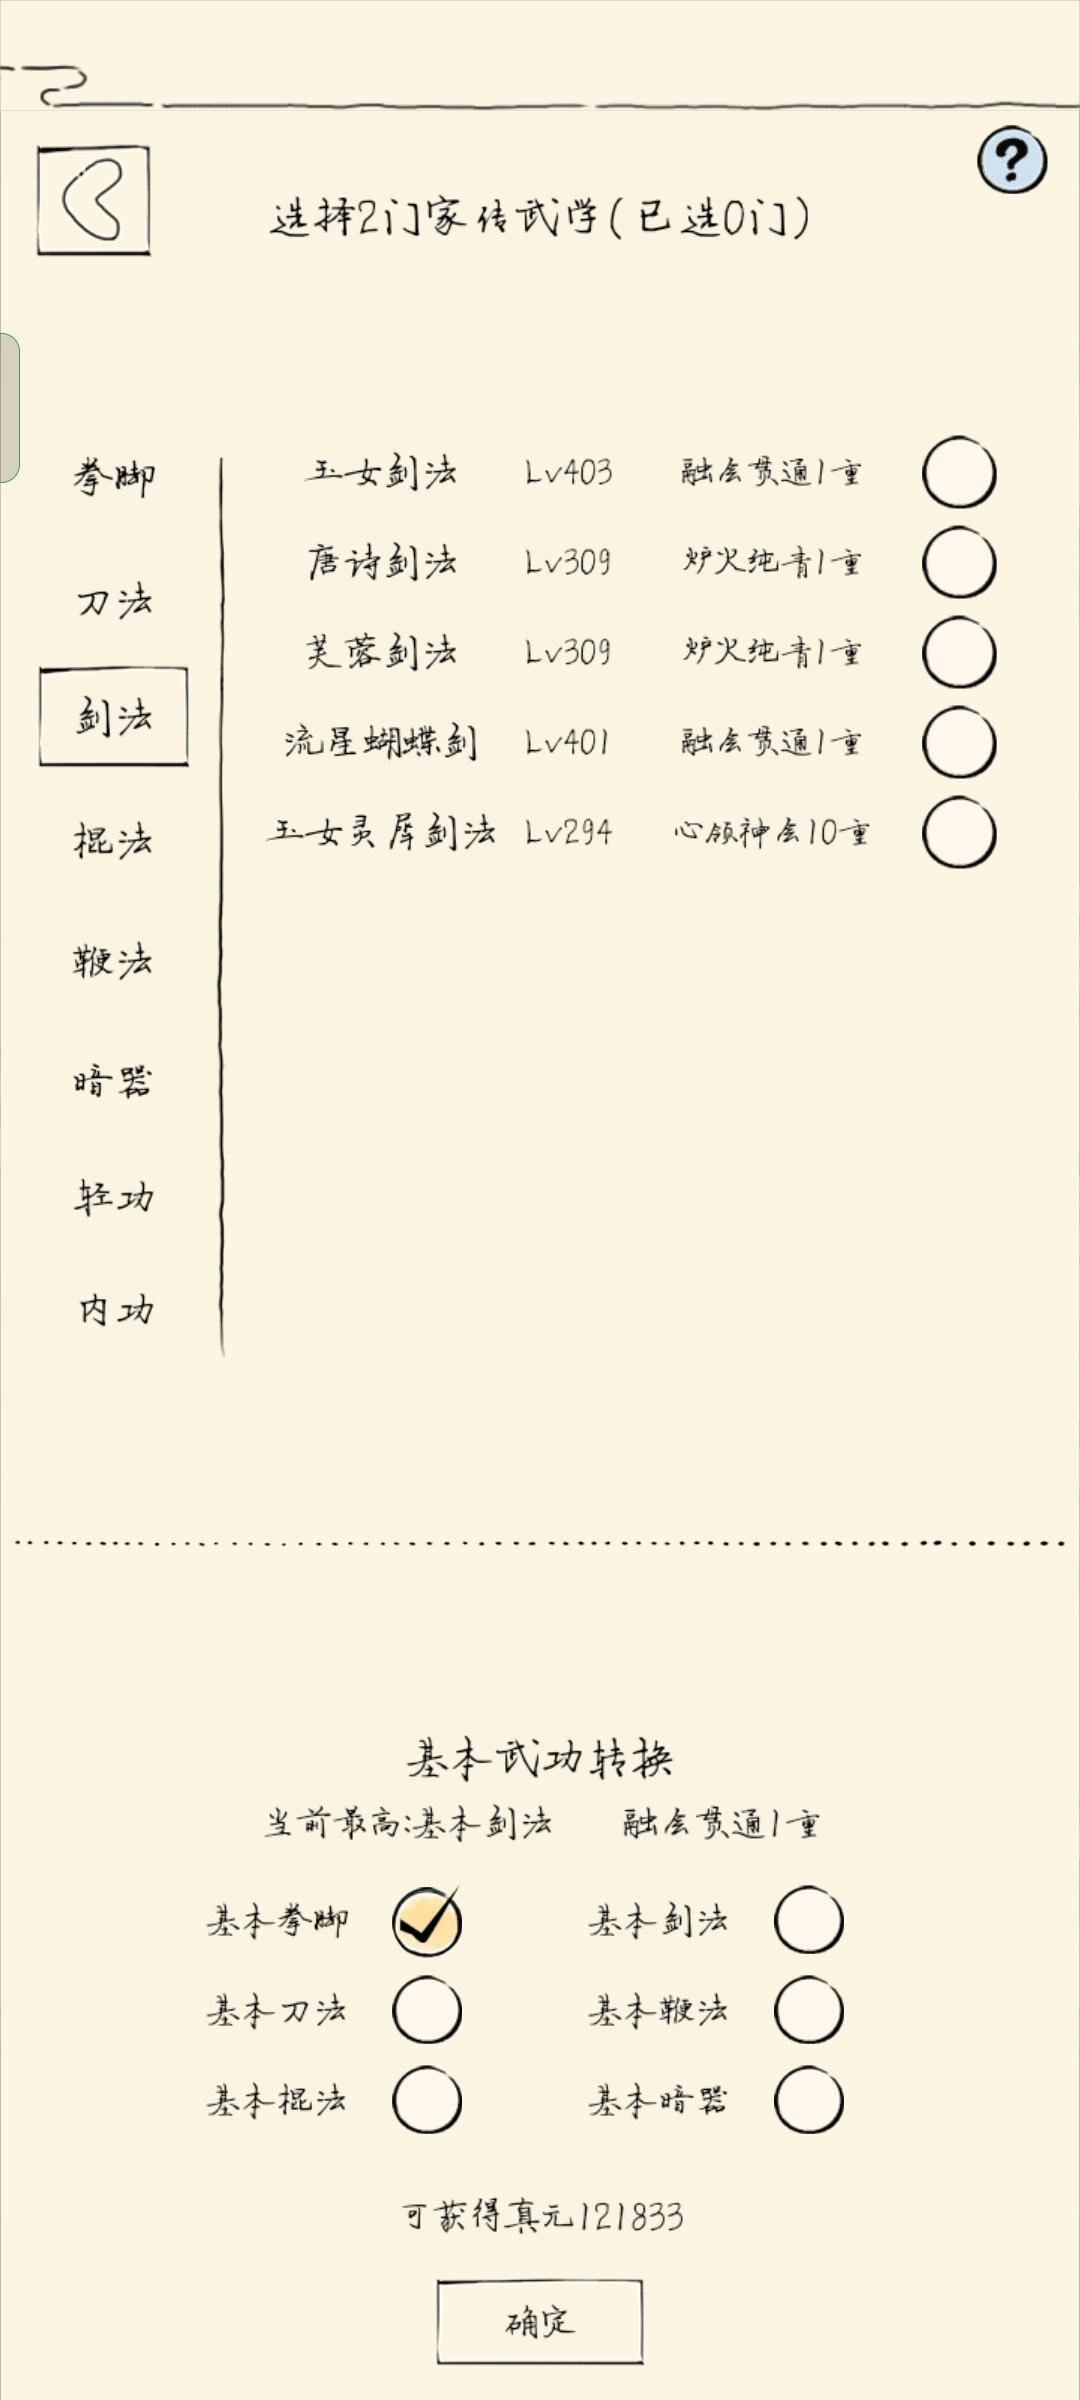 选择2门家传武学(已选0门)
拳脚
刀法
剑法
棍法
鞭法
暗器
轻功
内功
玉女剑法 Lv403 融会贯通1重
唐诗剑法 Lv309 炉火纯青1重
芙蓉剑法 Lv309 炉火纯青1重
流星蝴蝶剑 Lv401 融会贯通1重
玉女灵犀剑法 Lv294 心领神会10重
基本武功转换
当前最高:基本剑法 融会贯通1重
基本拳脚 基本剑法
基本刀法 基本鞭法
基本棍法 基本暗器
可获得真元121833
确定